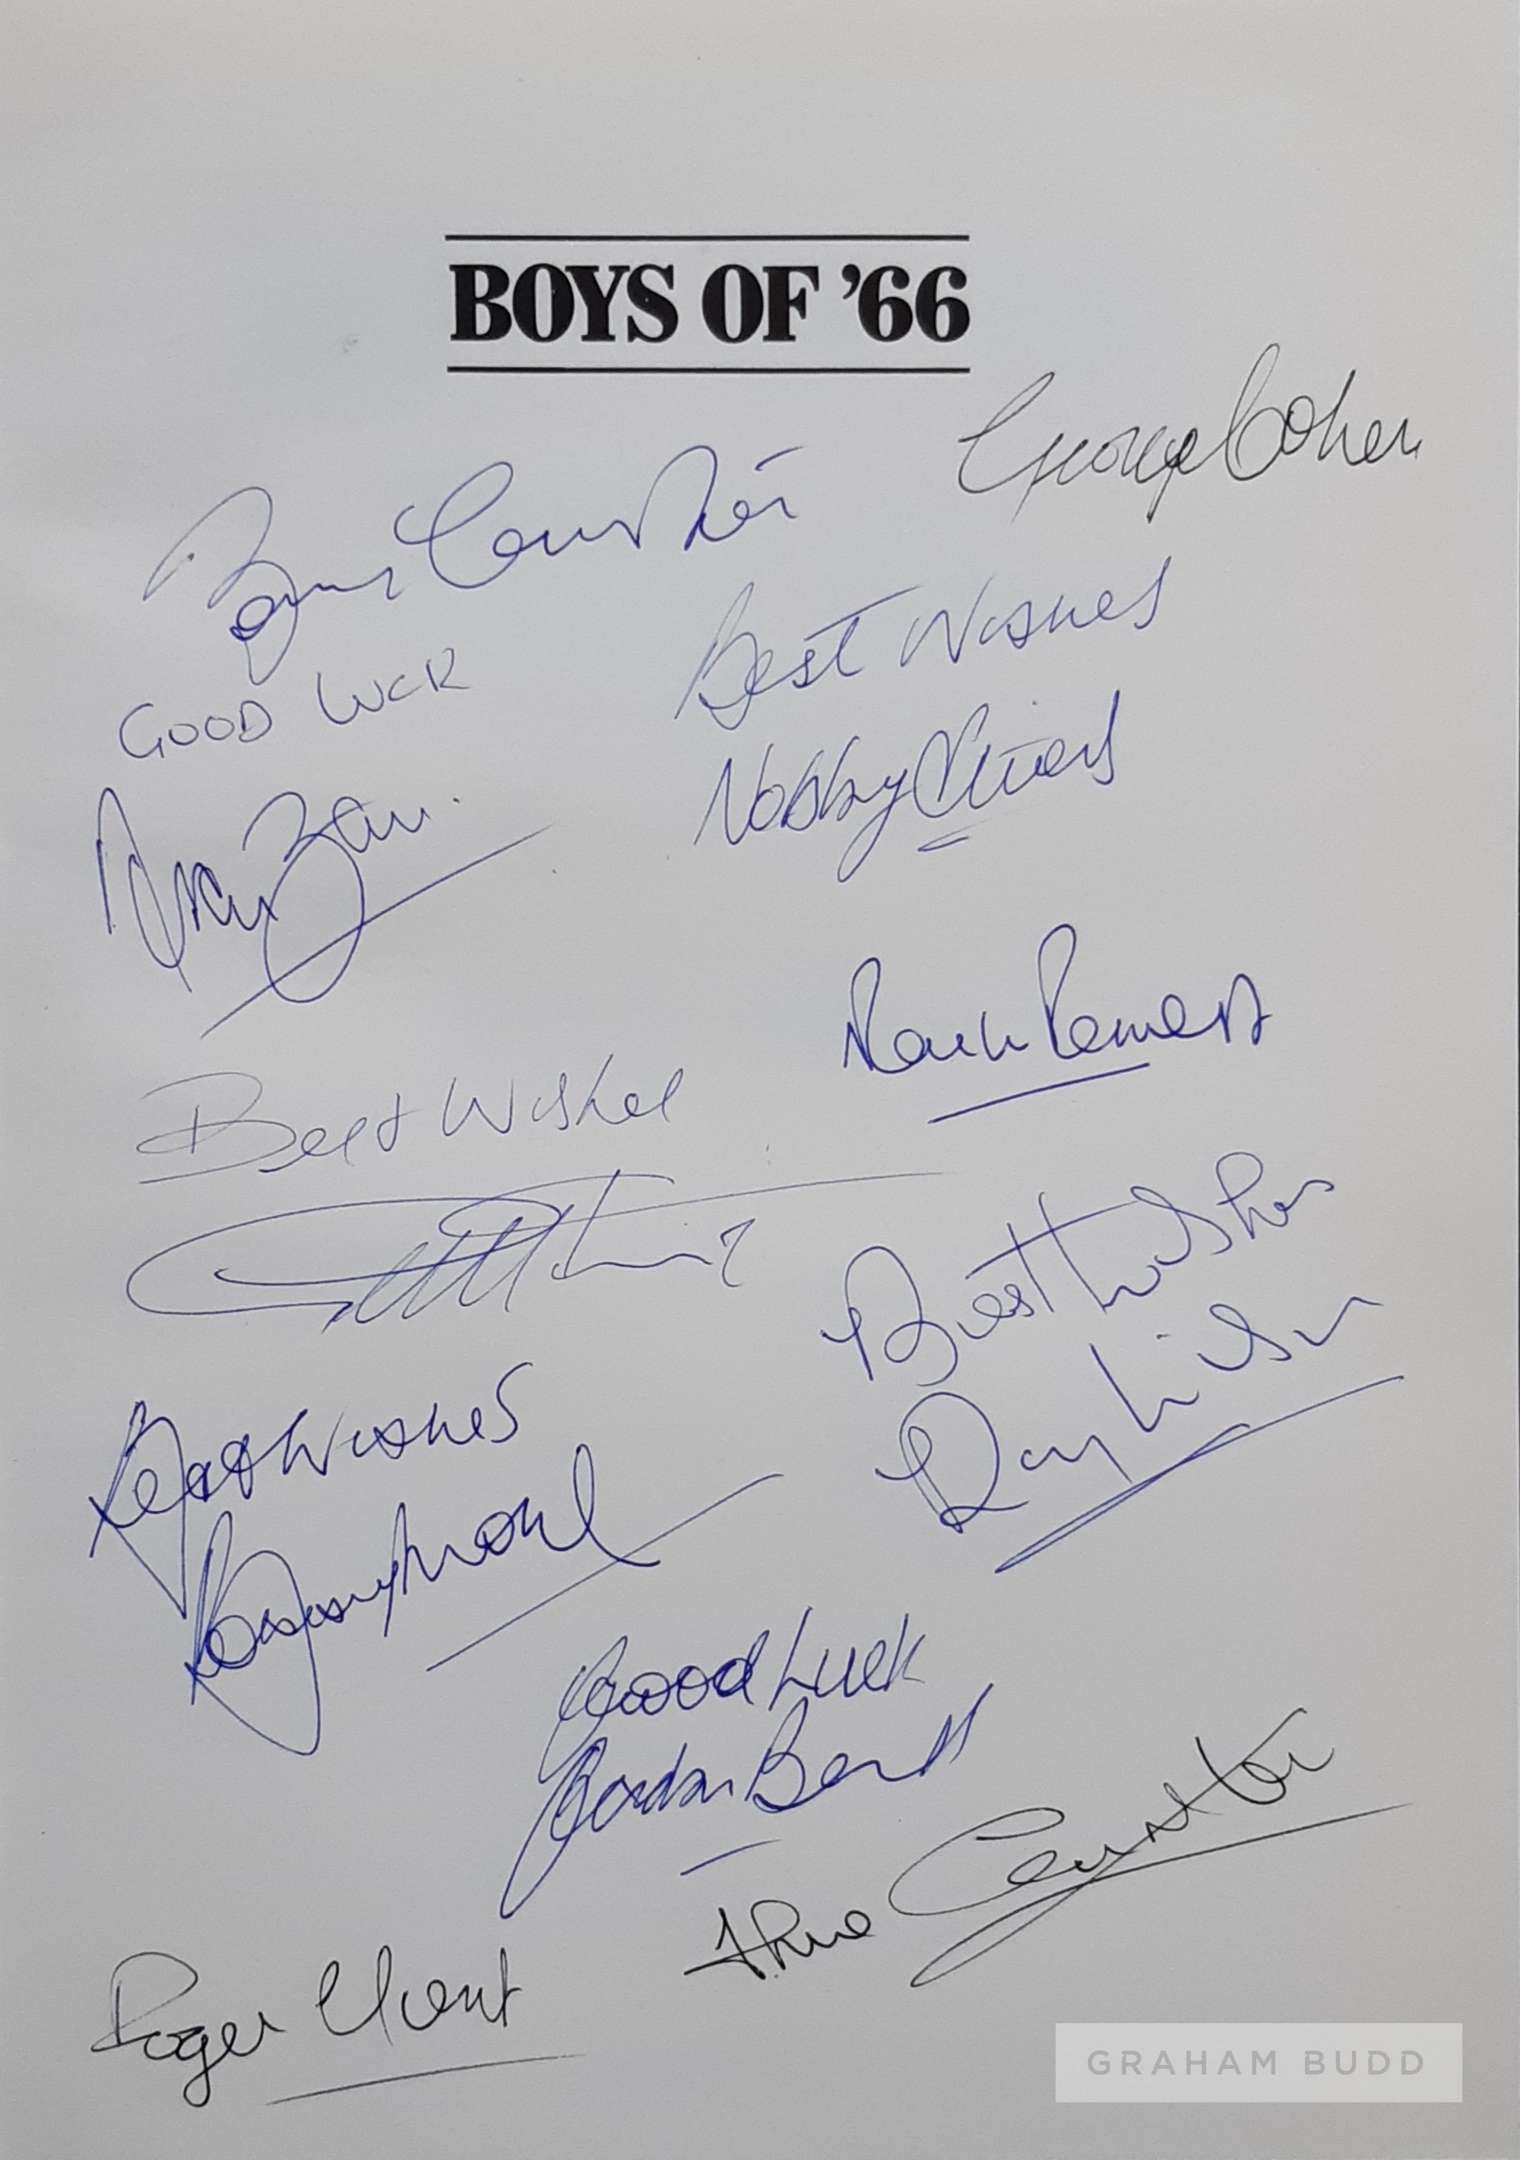 BOYS OF '66
George Cohen
GOOD LUCK
Best Wishes
Nobby Stiles
Alan Ball
Martin Peters
Best Wishes
Best Wishes
Ray Wilson
Best Wishes
Bobby Moore
Good Luck
Gordon Banks
Roger Hunt
GRAHAM BUDD